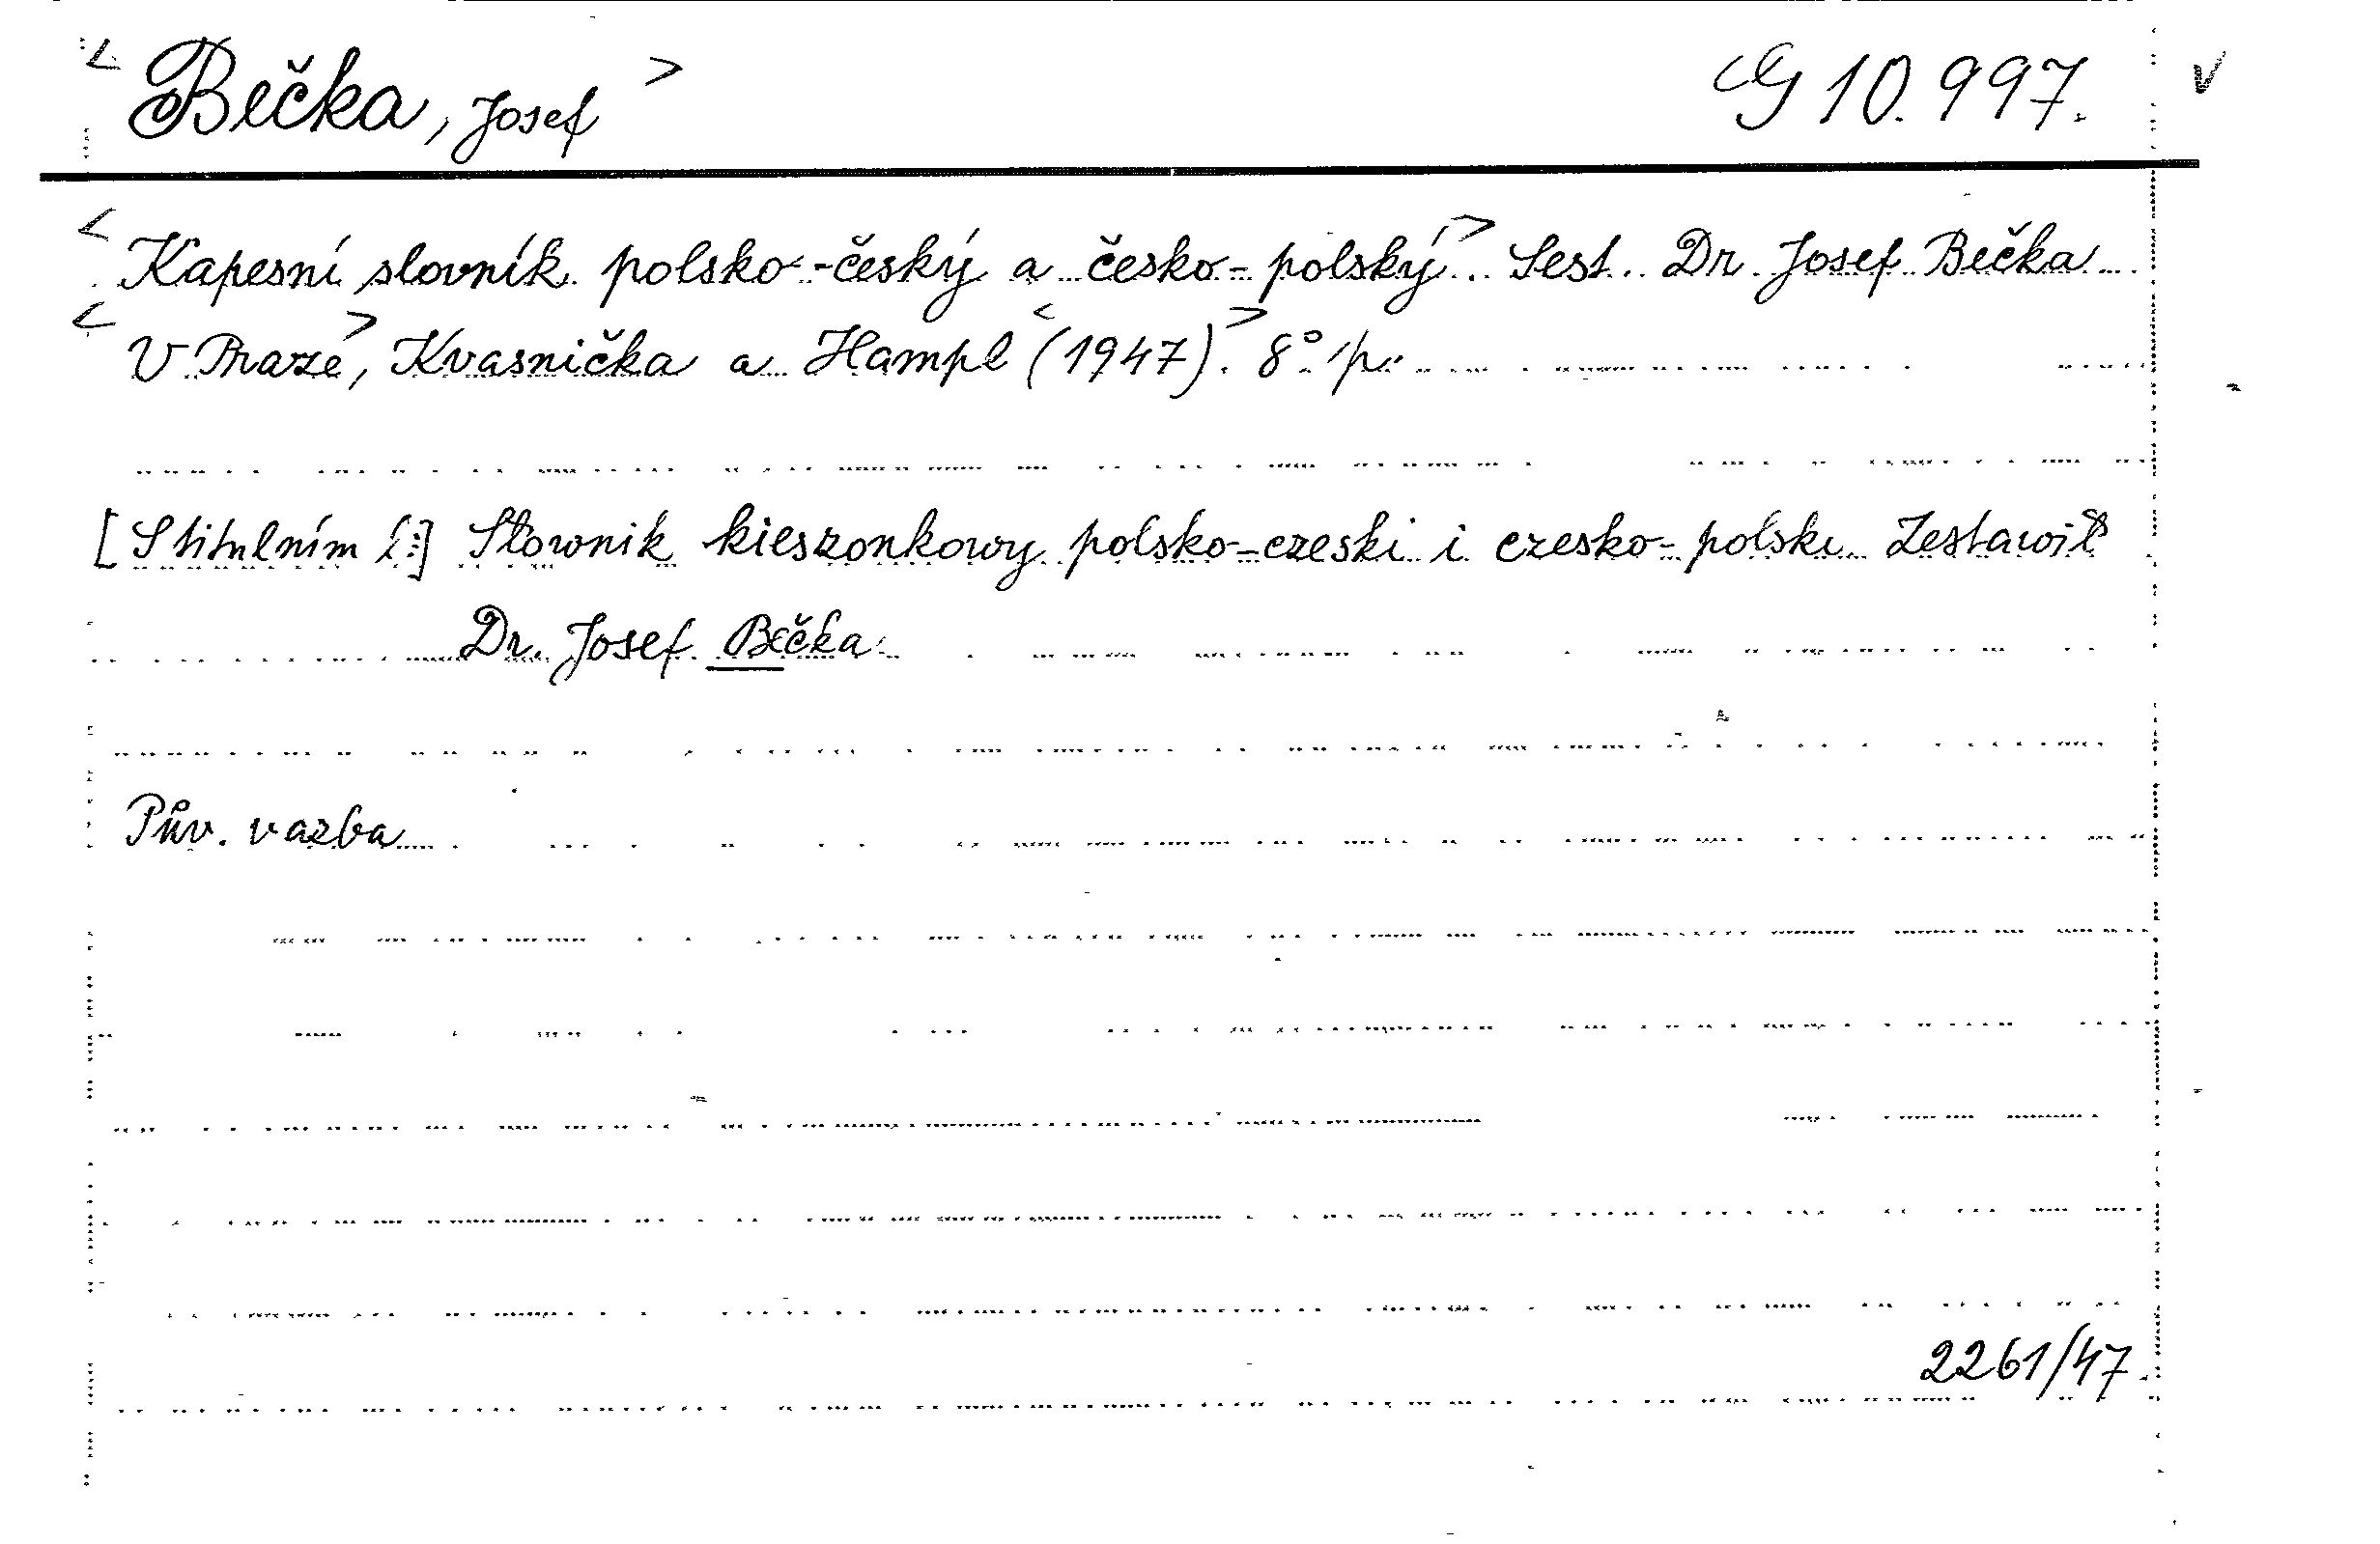 < Bečka, Josef > G 10.997. v
< Kapesní slovník polsko-český a česko-polský >. Sest. Dr. Josef Bečka
< V Praze >, Kvasnička a Hampl < (1947) >. 8° p.
[S titulním l:] Słownik kieszonkowy polsko-czeski i czesko-polski Zestawił
Dr. Josef Bečka
Pův. vazba
2261/47